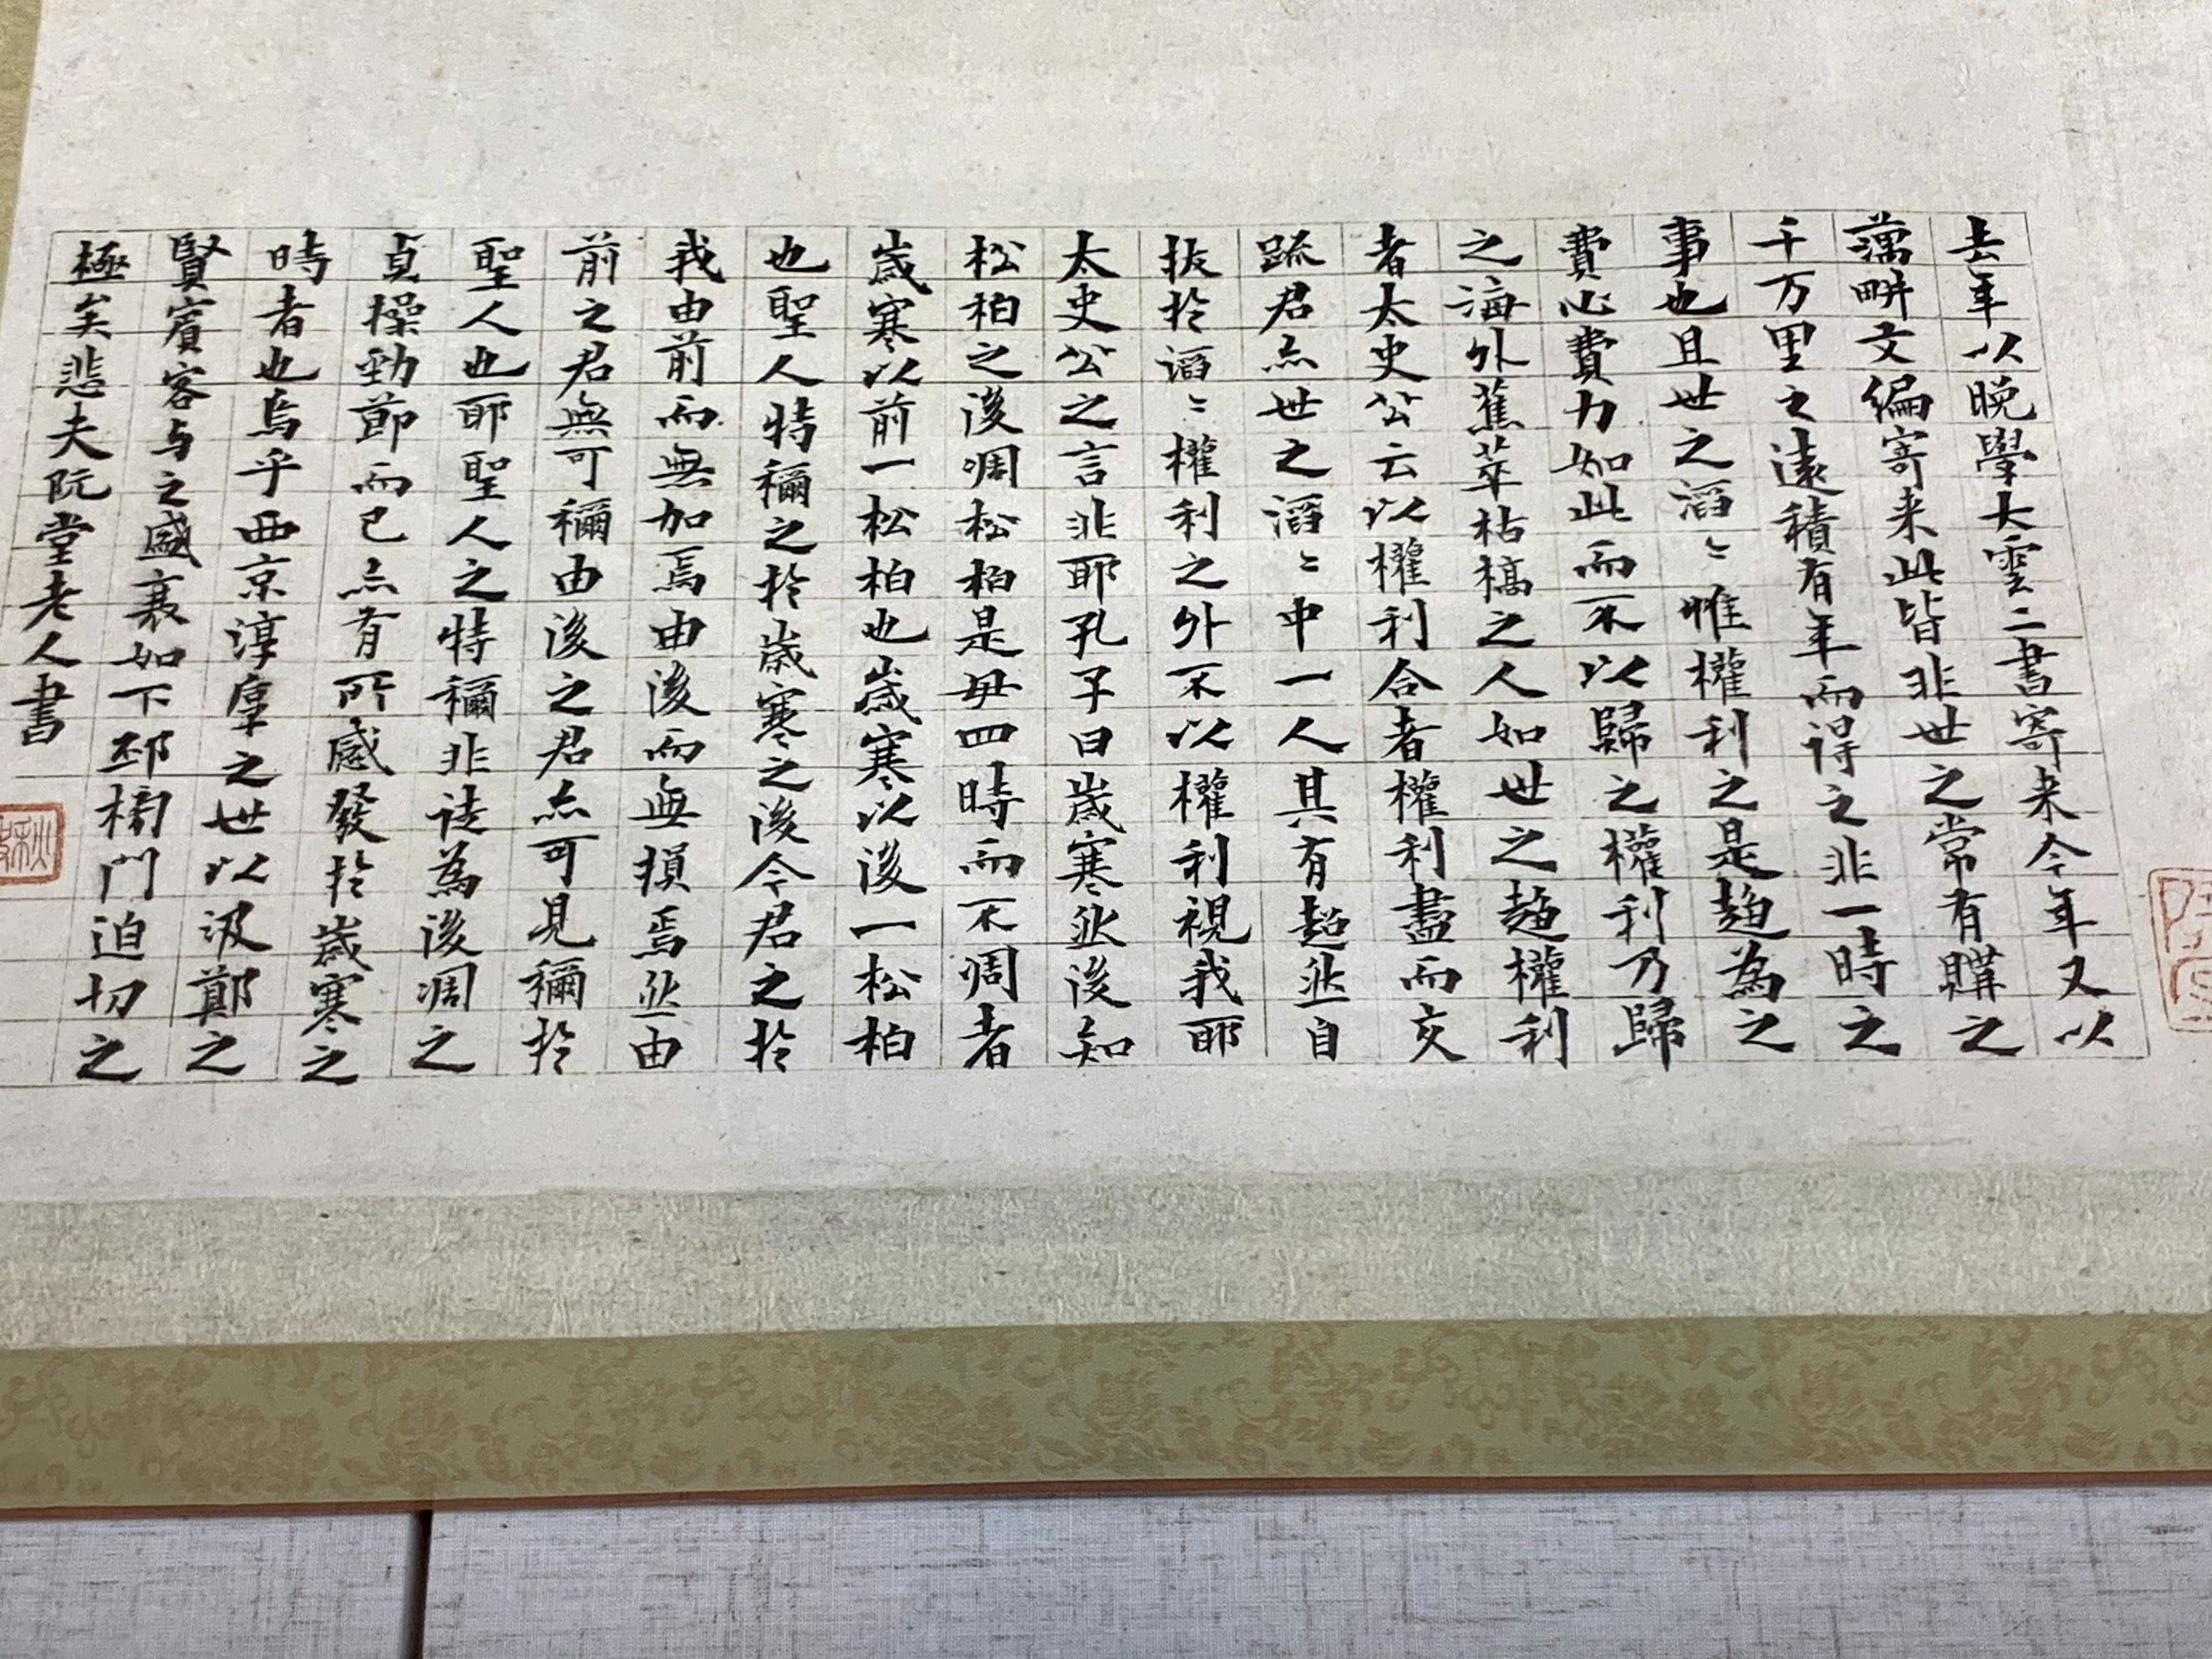 去年以晩學大雲二書寄来今年又以
藕畊文編寄来此皆非世之常有購之
千万里之遠積有年而得之非一時之
事也且世之滔〻惟權利之是趨為之
費心費力如此而不以歸之權利乃歸
之海外蕉萃枯槁之人如世之趨權利
者太史公云以權利合者權利盡而交
踈君亦世之滔〻中一人其有超然自
拔扵滔〻權利之外不以權利視我耶
太史公之言非耶孔子曰歲寒然後知
松柏之後凋松柏是毋四時而不凋者
歲寒以前一松柏也歲寒以後一松柏
也聖人特稱之扵歲寒之後今君之扵
我由前而無加焉由後而無損焉然由
前之君無可稱由後之君亦可見稱扵
聖人也耶聖人之特稱非徒為後凋之
貞操勁節而已亦有所感發扵歲寒之
時者也烏乎西京淳厚之世以汲鄭之
賢賓客与之盛衰如下邳榜門迫切之
極矣悲夫阮堂老人書